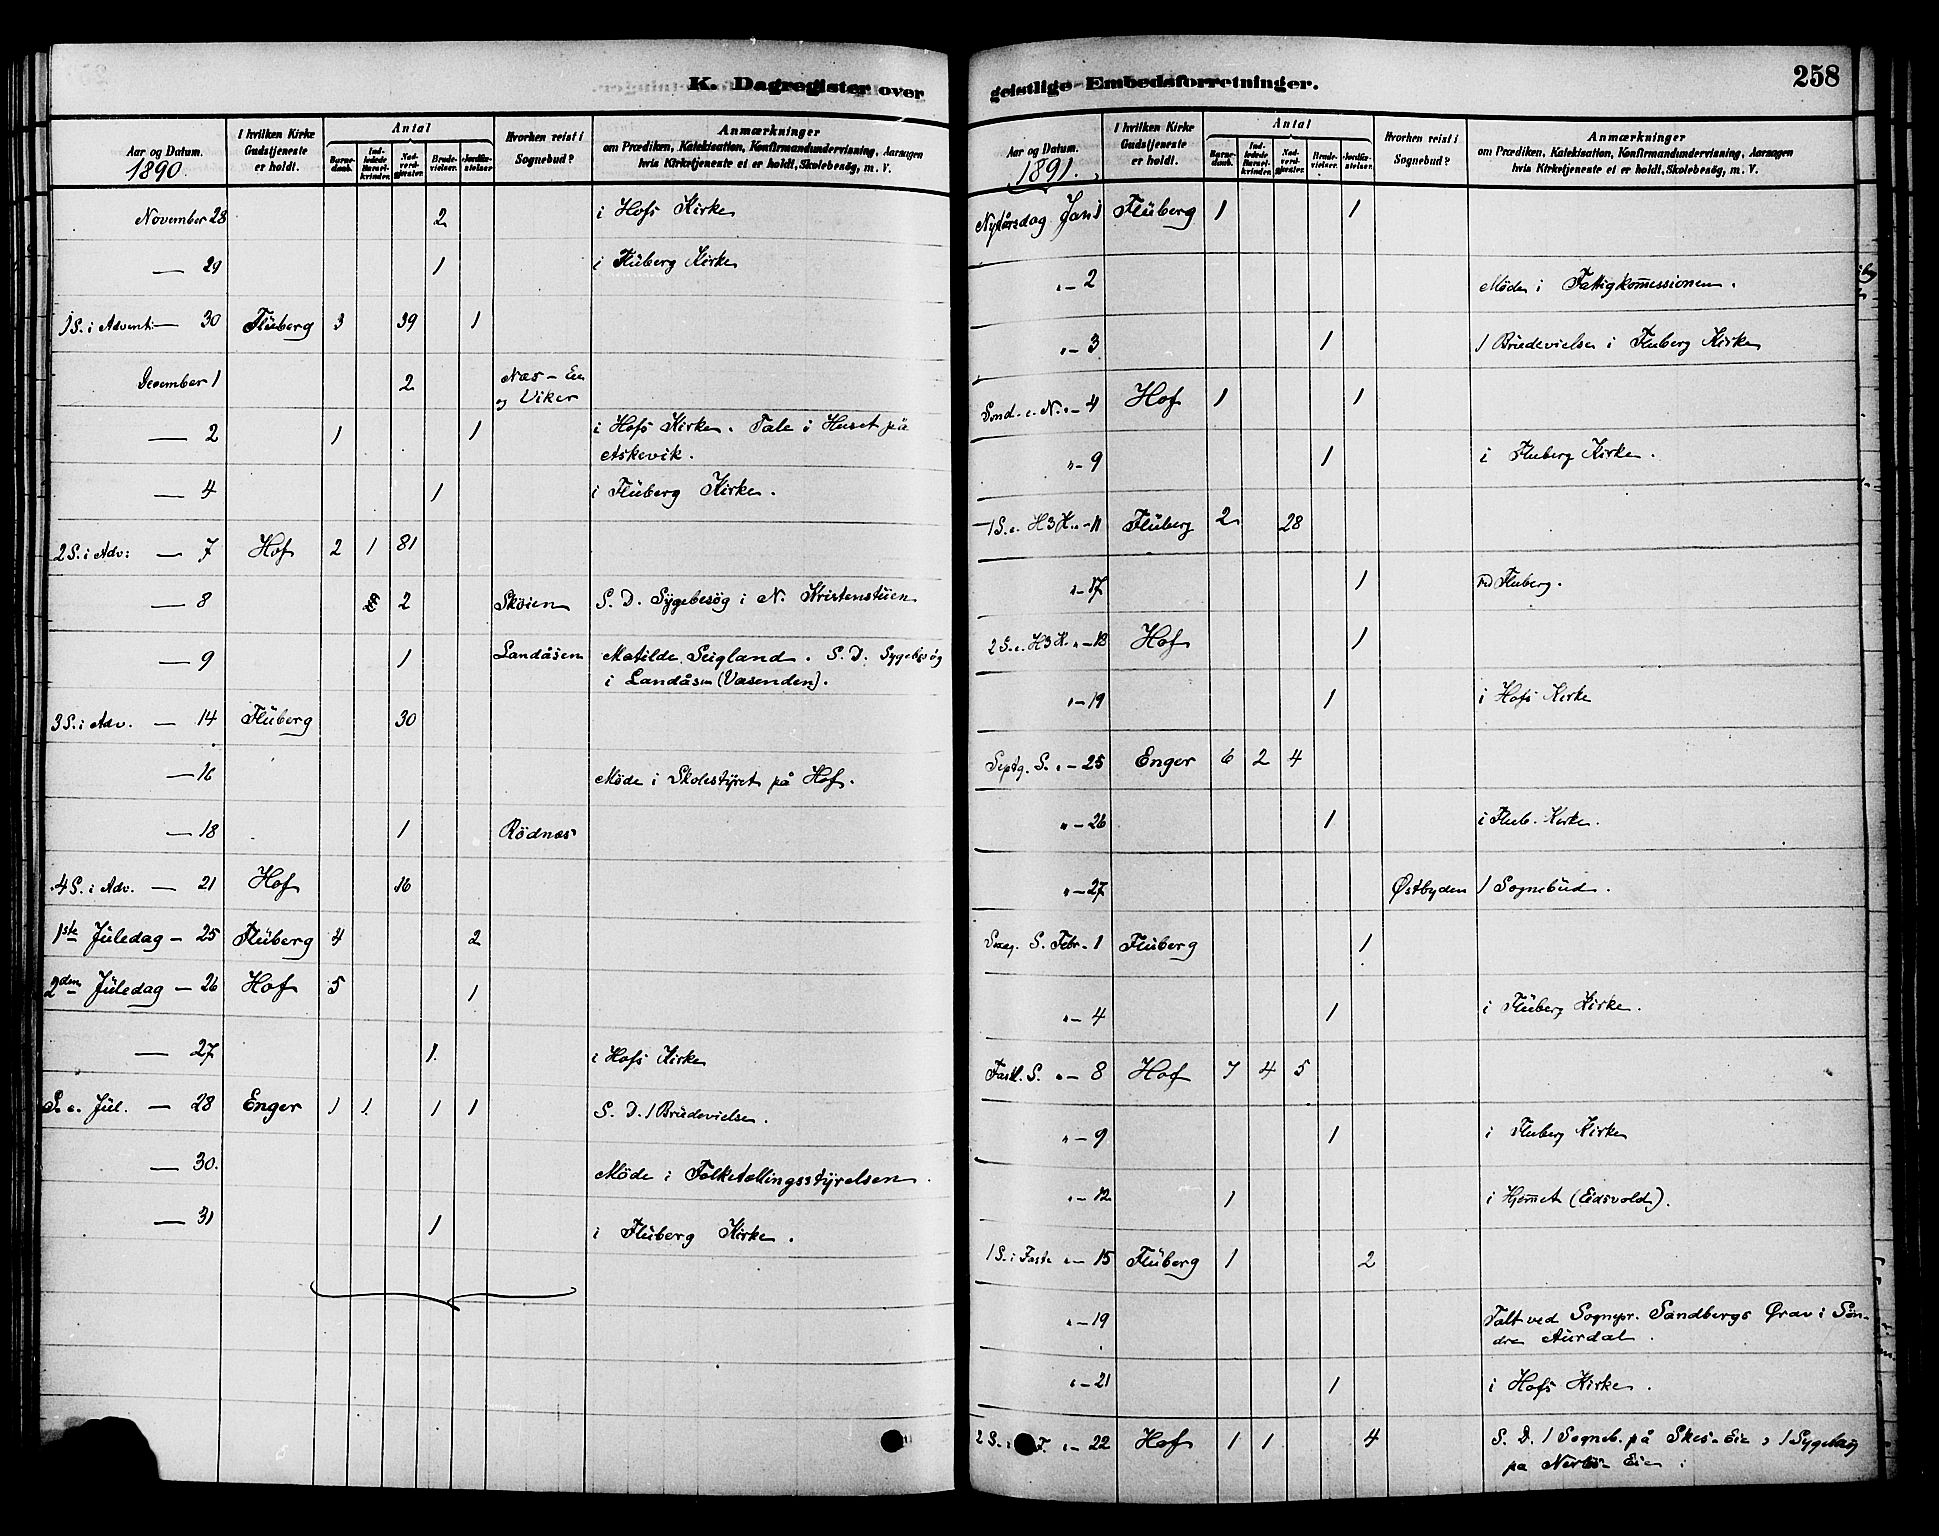 K. Dagregister over
Aar og Datum.
1890.
I hvilken Kirke Gudstjeneste er holdt.
Antal
Barnedaab. Indledede Barselkvinder. Nadverdgjæster. Brudevielser. Jordfæstelser
Hvorhen reist i Sognebud?
Anmærkninger
om Prædiken, Katekisation, Konfirmandundervisning, Aarsagen
hvis Kirketjeneste ei er holdt, Skolebesøg, m. V.
November 28 2 i Hofs Kirke
— 29 1 i Fluberg Kirke
1 S. i Advent — 30 Fluberg 3 39 1
December 1 2 Næs-Eie
og Viker
— 2 1 1 i Hofs Kirke. Tale i Huset på
Askevik.
— 4 1 i Fluberg Kirke.
2 S. i Adv: — 7 Hof 2 1 81
— 8 2 Sköien S. D. Sygebesøg i N. Kristenstuen
— 9 1 Landåsen Matilde Seigland. S. D. Sygebesøg
i Landåsen (Vasenden).
3 S. i Adv. — 14 Fluberg 30
— 16 Møde i Skolestyret på Hof.
— 18 1 Rödnæs
4 S. i Adv. — 21 Hof 16
1ste Juledag — 25 Fluberg 4 2
2den Juledag — 26 Hof 5 1
— 27 1 i Hofs Kirke
S. e. Jul. — 28 Enger 1 1 1 1 S. D. 1 Brudevielse.
— 30. Møde i Folketællingsstyrelsen.
— 31 1 i Fluberg Kirke.
geistlige Embedsforretninger.
258
Aar og Datum.
1891.
I hvilken Kirke Gudstjeneste er holdt.
Antal
Barnedaab. Indledede Barselkvinder. Nadverdgjæster. Brudevielser. Jordfæstelser
Hvorhen reist i Sognebud?
Anmærkninger
om Prædiken, Katekisation, Konfirmandundervisning, Aarsagen
hvis Kirketjeneste ei er holdt, Skolebesøg, m. V.
Nytårsdag Jan 1 Fluberg 1 1
" — 2 Møde i Fattigkommissionen.
" — 3 1 1 Brudevielse i Fluberg Kirke
Sönd. e. N. " — 4 Hof 1 1
" — 9 1 i Fluberg Kirke.
1 S. e. H3K. " — 11 Fluberg 2 28
" — 17 1 ved Fluberg.
2 S. e. H3K. " — 18 Hof 1
" — 19 1 i Hofs Kirke
Septg. S. " — 25 Enger 6 2 4
" — 26 1 i Flub. Kirke.
" — 27 Østbyden 1 Sognebud.
Sexag. S. Febr. 1 Fluberg 1
" — 4 1 i Fluberg Kirke.
Fastl. S. " — 8 Hof 7 4 5
" — 9 1 i Fluberg Kirke
" — 12 1 i Hjemmet (Eidsvold).
1 S. i Faste " — 15 Fluberg 1 2
" — 19 Talt ved Sognepr. Sandbergs Grav i Søn-
dre Aurdal.
" — 21 1 i Hofs Kirke.
2 S. i F. " — 22 Hof 1 1 4 S. D. 1 Sogneb. på Skes-Eie, 1 Sygebesøg
på Eie.